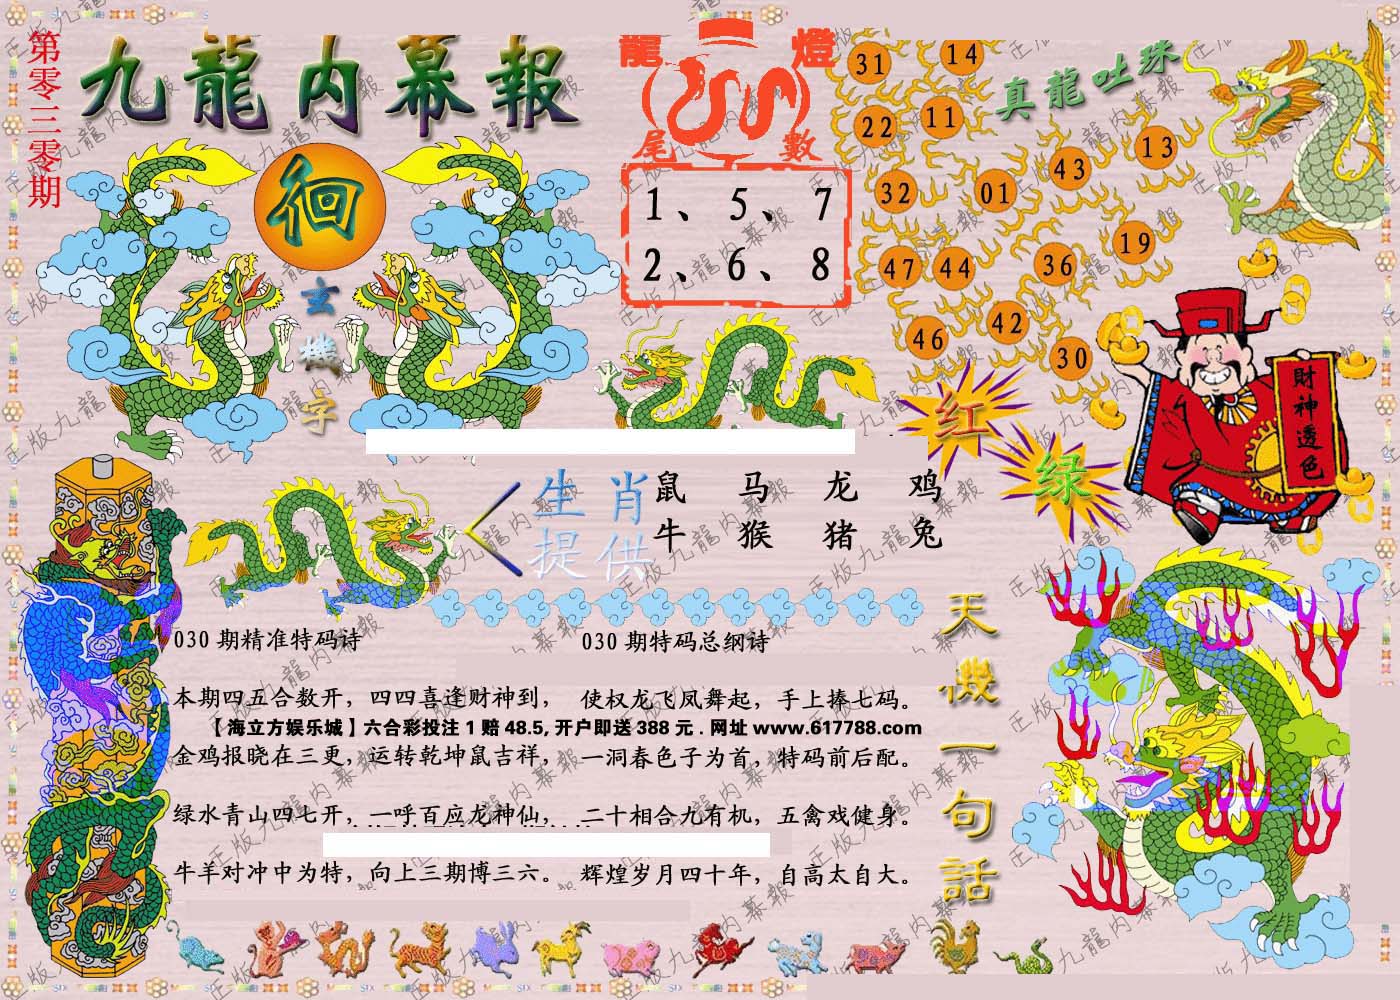 第零三零期
九龍内幕報
徊
玄機字
龍燈
尾數
1、5、7
2、6、8
真龍吐珠
31 14
22 11
13
43
32 01
19
47 44 36
46 42
30
红
绿
財神透色
生肖提供
鼠 马 龙 鸡
牛 猴 猪 兔
天機一句話
030期精准特码诗
本期四五合数开，四四喜逢财神到，
金鸡报晓在三更，运转乾坤鼠吉祥，
绿水青山四七开，一呼百应龙神仙，
牛羊对冲中为特，向上三期博三六。
030期特码总纲诗
使权龙飞凤舞起，手上捧七码。
一洞春色子为首，特码前后配。
二十相合九有机，五禽戏健身。
辉煌岁月四十年，自高太自大。
【海立方娱乐城】六合彩投注1赔48.5,开户即送388元.网址www.617788.com
正版九龍内幕報